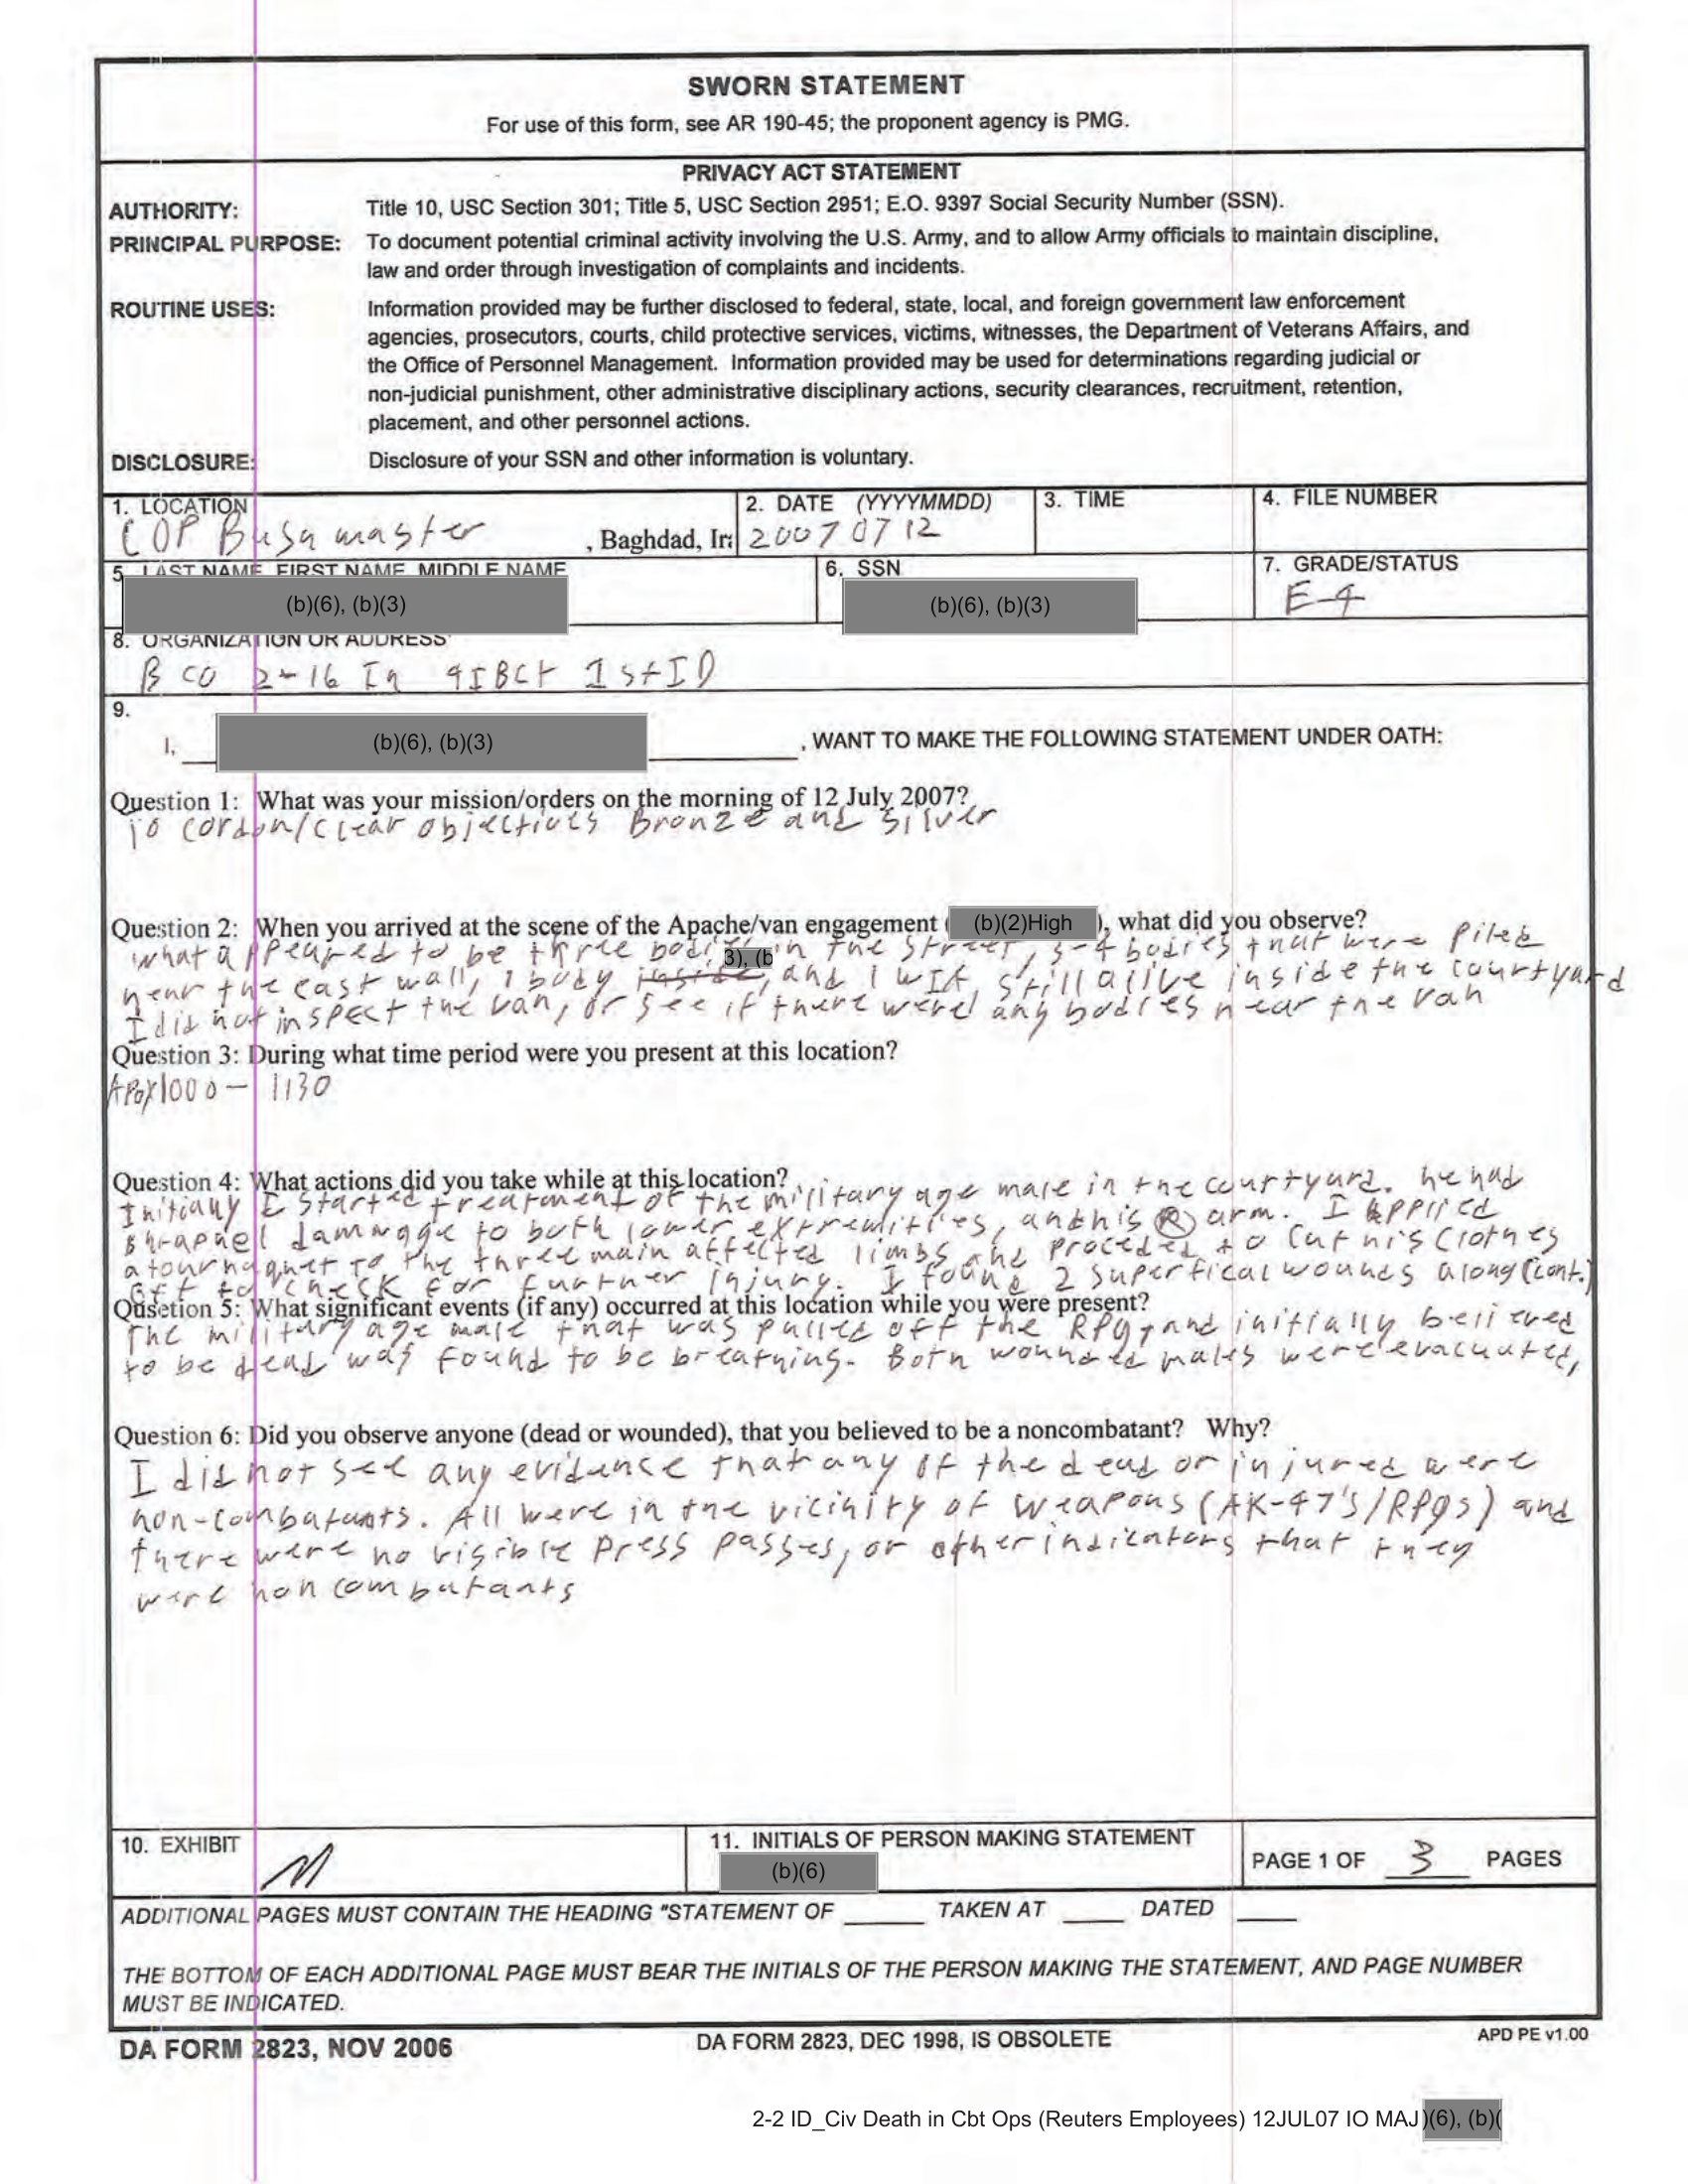 SWORN STATEMENT
For use of this form, see AR 190-45; the proponent agency is PMG.
PRIVACY ACT STATEMENT
AUTHORITY: Title 10, USC Section 301; Title 5, USC Section 2951; E.O. 9397 Social Security Number (SSN).
PRINCIPAL PURPOSE: To document potential criminal activity involving the U.S. Army, and to allow Army officials to maintain discipline,
law and order through investigation of complaints and incidents.
ROUTINE USES: Information provided may be further disclosed to federal, state, local, and foreign government law enforcement
agencies, prosecutors, courts, child protective services, victims, witnesses, the Department of Veterans Affairs, and
the Office of Personnel Management. Information provided may be used for determinations regarding judicial or
non-judicial punishment, other administrative disciplinary actions, security clearances, recruitment, retention,
placement, and other personnel actions.
DISCLOSURE: Disclosure of your SSN and other information is voluntary.
1. LOCATION 2. DATE (YYYYMMDD) 3. TIME 4. FILE NUMBER
COP Busamaster , Baghdad, Ira 20070712
5. LAST NAME, FIRST NAME, MIDDLE NAME 6. SSN 7. GRADE/STATUS
(b)(6), (b)(3) (b)(6), (b)(3) E-4
8. ORGANIZATION OR ADDRESS
B CO 2-16 In 4IBCT 1stID
9.
I, (b)(6), (b)(3) , WANT TO MAKE THE FOLLOWING STATEMENT UNDER OATH:
Question 1: What was your mission/orders on the morning of 12 July 2007?
To cordon/clear objectives Bronze and Silver
Question 2: When you arrived at the scene of the Apache/van engagement ( (b)(2)High ), what did you observe?
what appeared to be three bodies 3), (b in the street, 3-4 bodies that were piled
near the east wall, 1 body inside, and 1 WIA, still alive inside the courtyard
I did not inspect the van, or see if there were any bodies near the van
Question 3: During what time period were you present at this location?
Apox 1000 - 1130
Question 4: What actions did you take while at this location?
Initialy I started treatment of the military age male in the courtyard. he had
shrapnel dammage to both lower extremities, and his (R) arm. I applied
a tournaquet to the three main affected limbs and proceded to cut his clothes
off to check for further injury. I found 2 superfical wounds along (cont.)
Qusetion 5: What significant events (if any) occurred at this location while you were present?
The military age male that was pulled off the RPG, and initially believed
to be dead was found to be breathing. Both wounded males were evacuated,
Question 6: Did you observe anyone (dead or wounded), that you believed to be a noncombatant? Why?
I did not see any evidance that any of the dead or injured were
non-combatants. All were in the vicinity of weapons (AK-47's/RPGs) and
there were no visible Press passes, or other indicators that they
were non combatants
10. EXHIBIT 11. INITIALS OF PERSON MAKING STATEMENT
(b)(6) PAGE 1 OF 3 PAGES
ADDITIONAL PAGES MUST CONTAIN THE HEADING "STATEMENT OF ____ TAKEN AT ____ DATED ____
THE BOTTOM OF EACH ADDITIONAL PAGE MUST BEAR THE INITIALS OF THE PERSON MAKING THE STATEMENT, AND PAGE NUMBER
MUST BE INDICATED.
DA FORM 2823, NOV 2006 DA FORM 2823, DEC 1998, IS OBSOLETE APD PE v1.00
2-2 ID_Civ Death in Cbt Ops (Reuters Employees) 12JUL07 IO MAJ )(6), (b)(